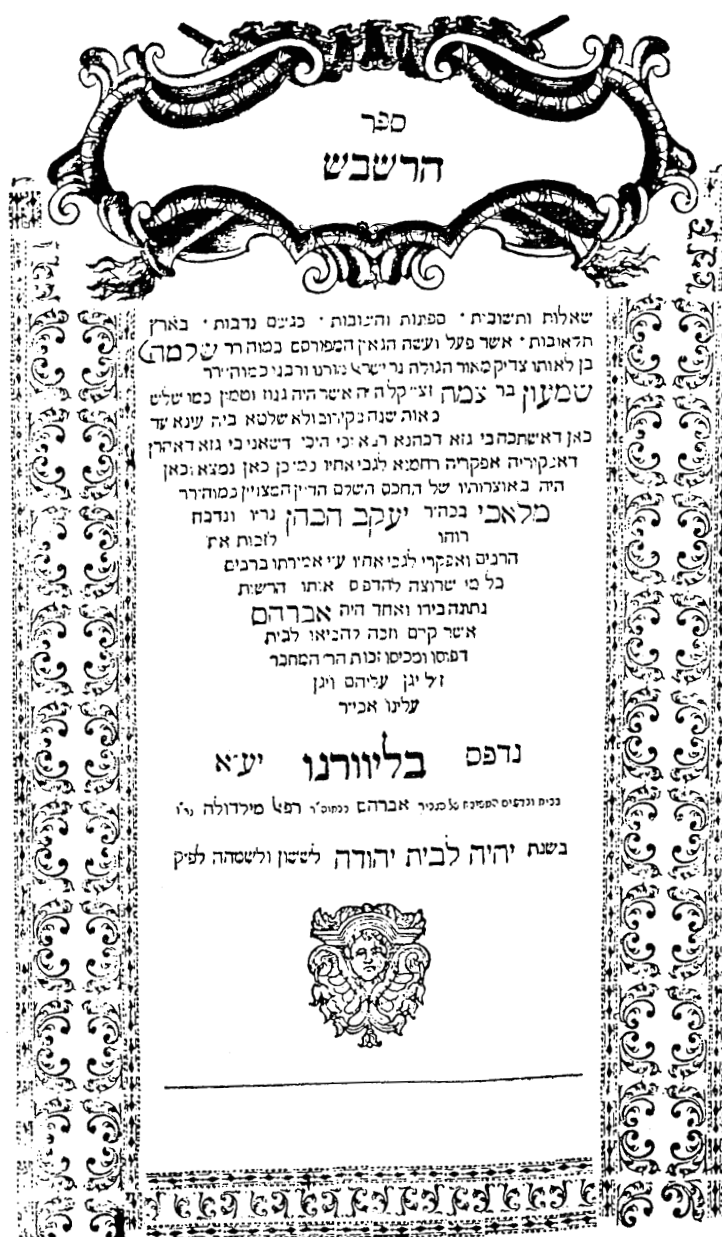 ספר
הרשבש
שאלות ותשובות · ספתות והשובות · כגשם נדבות · בארץ
תלאובות · אשר פעל ועשה הגאון המפורסם כמוהרר שלמה
בן לאותו צדיק מאור הגולה נר ישראל מורנו ורבנו כמוהירר
שמעון בר צמח זצ״קל היה אשר היה גנוז וטמון כמו שלש
מאות שנה בקירוב ולא שלטא ביה עינא עד
כאן דאשתכח בי גזא דכהנא רבא כי היכי דשאני בי גזא דאהרן
רחמנא לגבי אחיו כמו כן כאן נמצא וכאן
היה באוצרותיו של החכם השלם הדיין המצויין כמוהירר
מלאכי בכהיר יעקב הכהן נריו ונדבה
רוחו לזכות את
הרבים ואפקרי לגבי אחיו ע״י אמירתו ברבים
כל מי שרוצה להדפיס אותו הרשות
נתונה בידו ואחד היה אברהם
אשר קדם וזכה להביאו לבית
דפוסו ומכיסו זכות הר׳ המחבר
ז״ל יגן עליהם ויגן
עלינו אכי״ר
נדפס בליוורנו יע״א
אברהם רפאל מילדולה נר״ו
בשנת יהיה לבית יהודה לששון ולשמחה לפ״ק